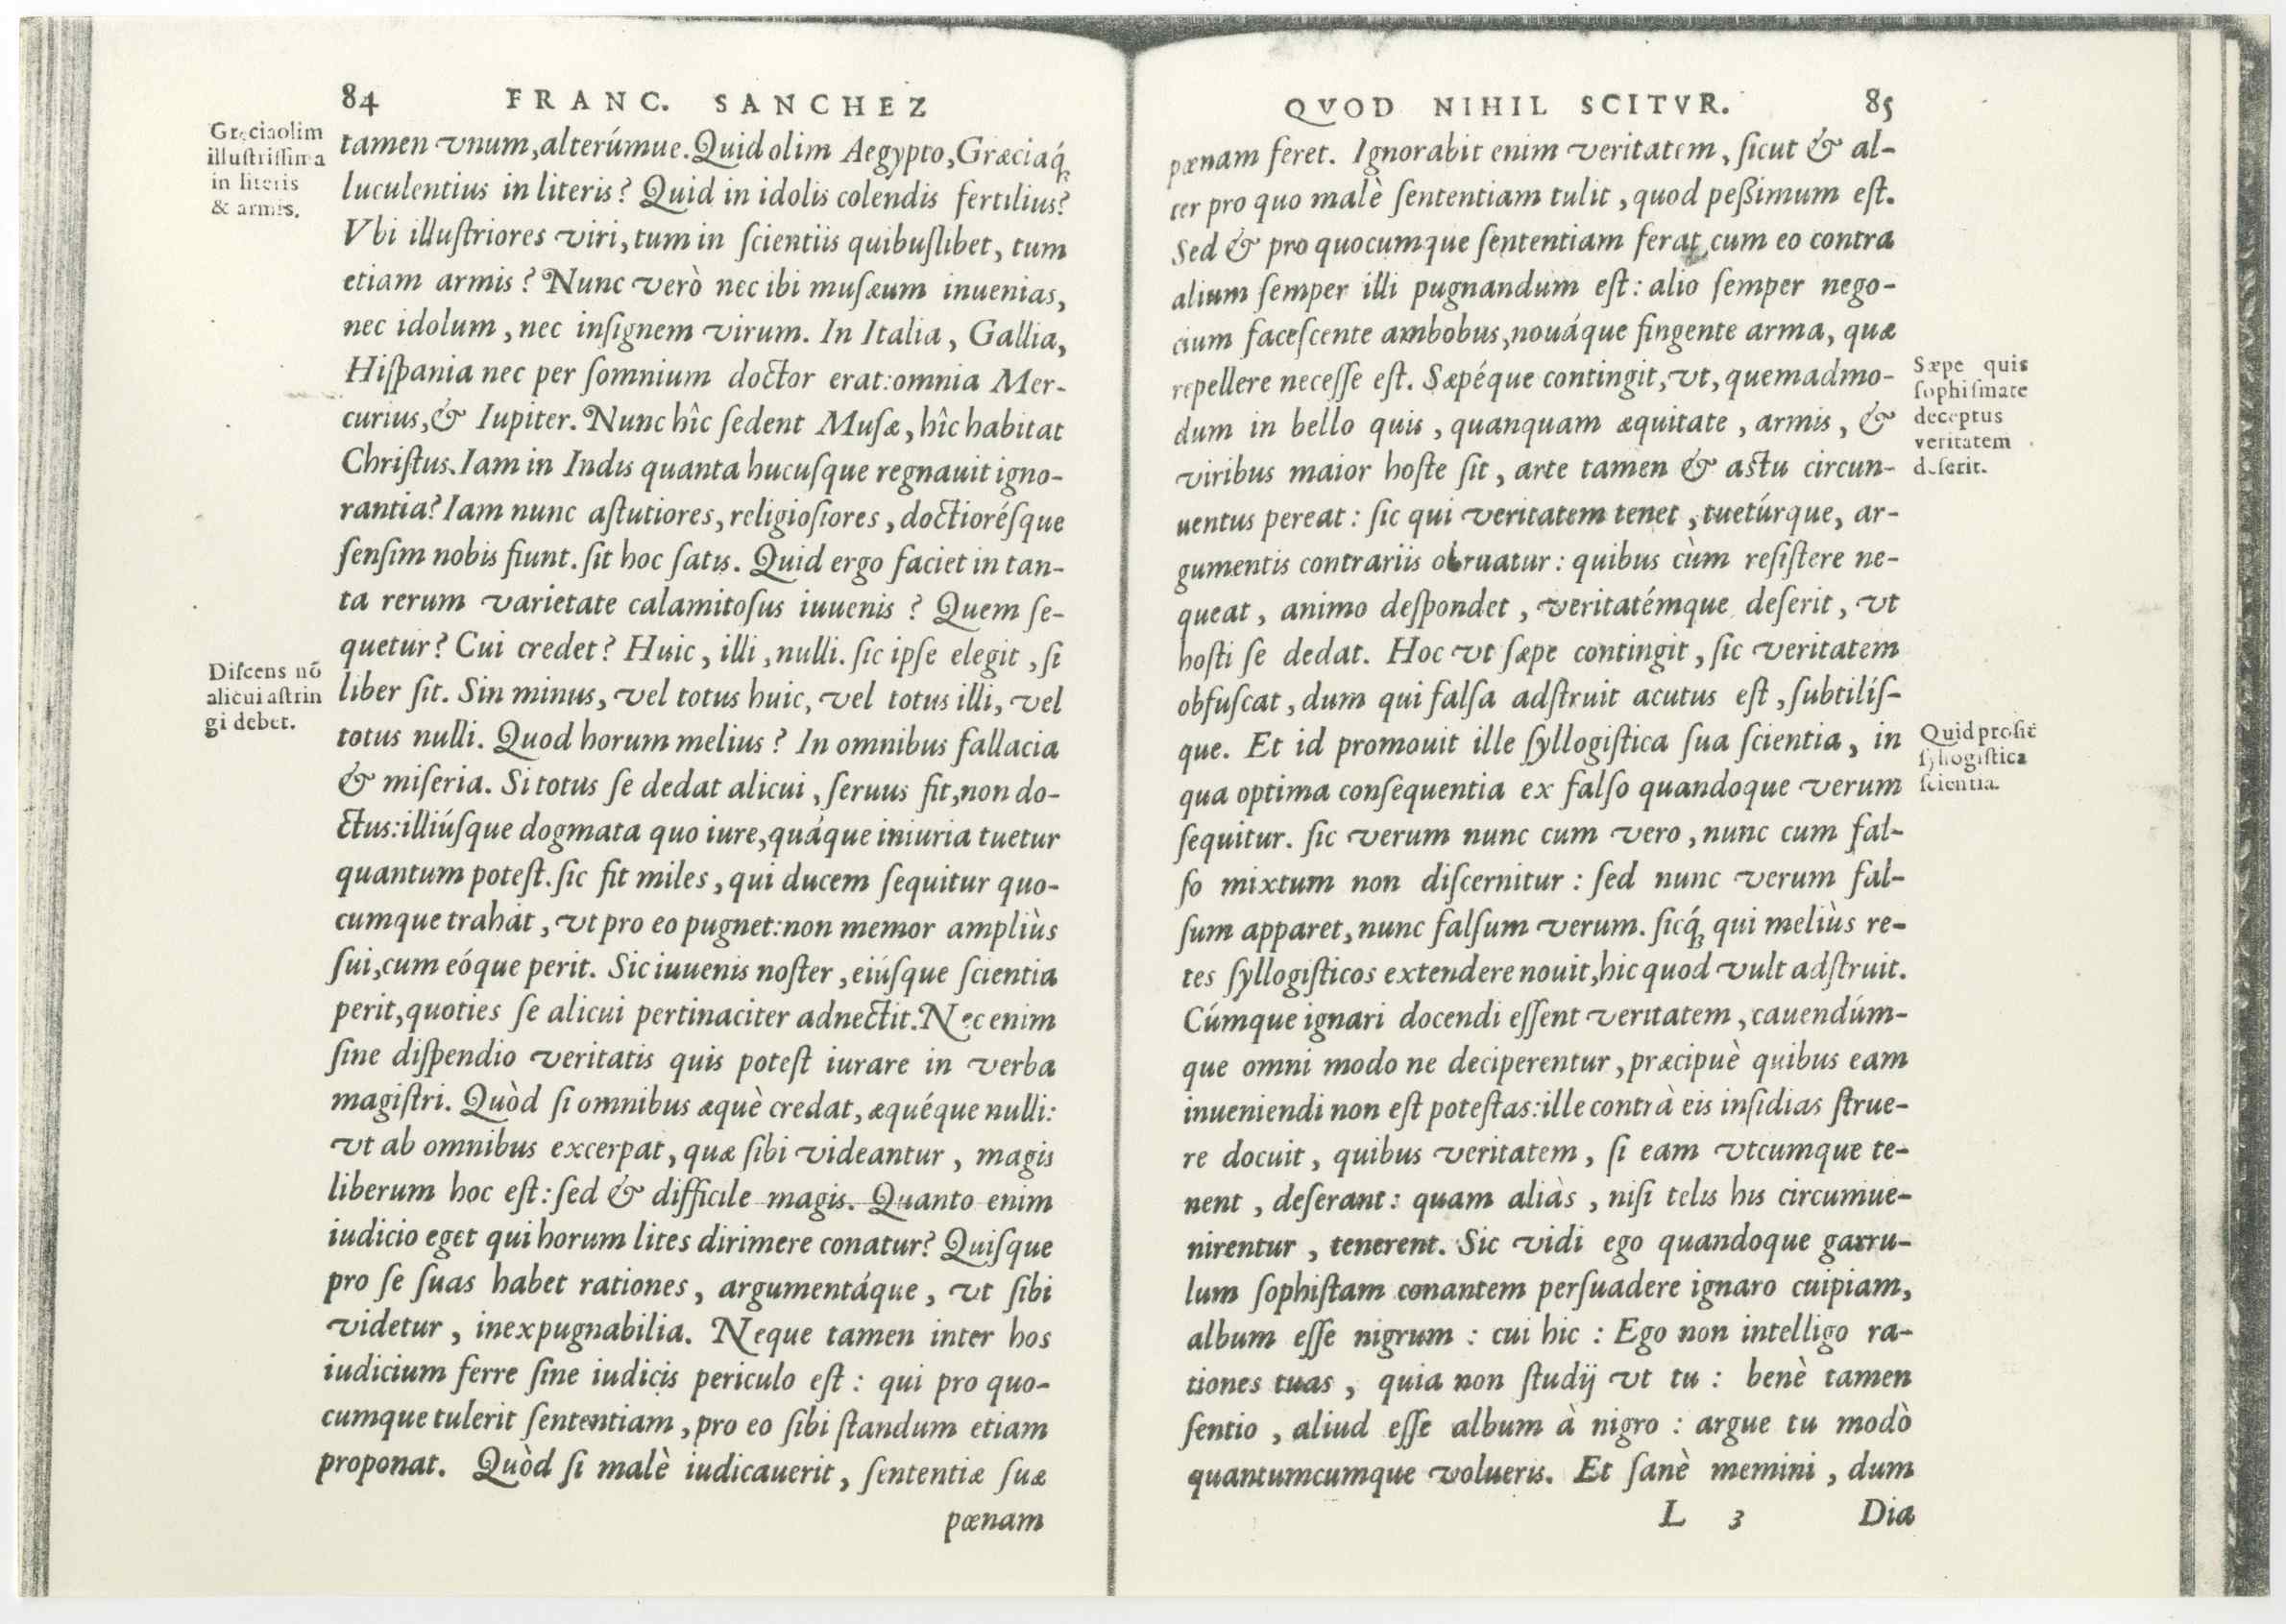 84 FRANC. SANCHEZ
Gręciaolim
illustrissima
in literis
& armis.
tamen vnum, alterúmue. Quid olim Aegypto, Græciaq́;
luculentius in literis? Quid in idolis colendis fertilius?
Vbi illustriores viri, tum in scientiis quibuslibet, tum
etiam armis? Nunc verò nec ibi musæum inuenias,
nec idolum, nec insignem virum. In Italia, Gallia,
Hispania nec per somnium doctor erat: omnia Mer-
curius, & Iupiter. Nunc hîc sedent Musæ, hîc habitat
Christus. Iam in Indis quanta hucusque regnauit igno-
rantia? Iam nunc astutiores, religiosiores, doctiorésque
sensim nobis fiunt. sit hoc satis. Quid ergo faciet in tan-
ta rerum varietate calamitosus iuuenis? Quem se-
quetur? Cui credet? Huic, illi, nulli. sic ipse elegit, si
Discens nō
alicui astrin
gi debet.
liber sit. Sin minus, vel totus huic, vel totus illi, vel
totus nulli. Quod horum melius? In omnibus fallacia
& miseria. Si totus se dedat alicui, seruus fit, non do-
ctus: illiúsque dogmata quo iure, quáque iniuria tuetur
quantum potest. sic fit miles, qui ducem sequitur quo-
cumque trahat, vt pro eo pugnet: non memor ampliùs
sui, cum eóque perit. Sic iuuenis noster, eiúsque scientia
perit, quoties se alicui pertinaciter adnectit. Nec enim
sine dispendio veritatis quis potest iurare in verba
magistri. Quòd si omnibus æquè credat, æquéque nulli:
vt ab omnibus excerpat, quæ sibi videantur, magis
liberum hoc est: sed & difficile magis. Quanto enim
iudicio eget qui horum lites dirimere conatur? Quisque
pro se suas habet rationes, argumentáque, vt sibi
videtur, inexpugnabilia. Neque tamen inter hos
iudicium ferre sine iudicis periculo est: qui pro quo-
cumque tulerit sententiam, pro eo sibi standum etiam
proponat. Quòd si malè iudicauerit, sententiæ suæ
pœnam
QVOD NIHIL SCITVR. 85
pœnam feret. Ignorabit enim veritatem, sicut & al-
ter pro quo malè sententiam tulit, quod peßimum est.
Sed & pro quocumque sententiam ferat, cum eo contra
alium semper illi pugnandum est: alio semper nego-
cium facescente ambobus, nouáque fingente arma, quæ
repellere necesse est. Sæpéque contingit, vt, quemadmo-
dum in bello quis, quanquam æquitate, armis, &
viribus maior hoste sit, arte tamen & astu circun-
Sæpe quis
sophismate
deceptus
veritatem
deserit.
uentus pereat: sic qui veritatem tenet, tuetúrque, ar-
gumentis contrariis obruatur: quibus cùm resistere ne-
queat, animo despondet, veritatémque deserit, vt
hosti se dedat. Hoc vt sæpe contingit, sic veritatem
obfuscat, dum qui falsa adstruit acutus est, subtilís-
que. Et id promouit ille syllogistica sua scientia, in
qua optima consequentia ex falso quandoque verum
Quid prosit
syllogistica
scientia.
sequitur. sic verum nunc cum vero, nunc cum fal-
so mixtum non discernitur: sed nunc verum fal-
sum apparet, nunc falsum verum. sicq́; qui meliùs re-
tes syllogisticos extendere nouit, hic quod vult adstruit.
Cúmque ignari docendi essent veritatem, cauendúm-
que omni modo ne deciperentur, præcipuè quibus eam
inueniendi non est potestas: ille contrà eis insidias strue-
re docuit, quibus veritatem, si eam vtcumque te-
nent, deserant: quam aliàs, nisi telis his circumue-
nirentur, tenerent. Sic vidi ego quandoque garru-
lum sophistam conantem persuadere ignaro cuipiam,
album esse nigrum: cui hic: Ego non intelligo ra-
tiones tuas, quia non studij vt tu: benè tamen
sentio, aliud esse album à nigro: argue tu modò
quantumcumque volueris. Et sanè memini, dum
L 3 Dia